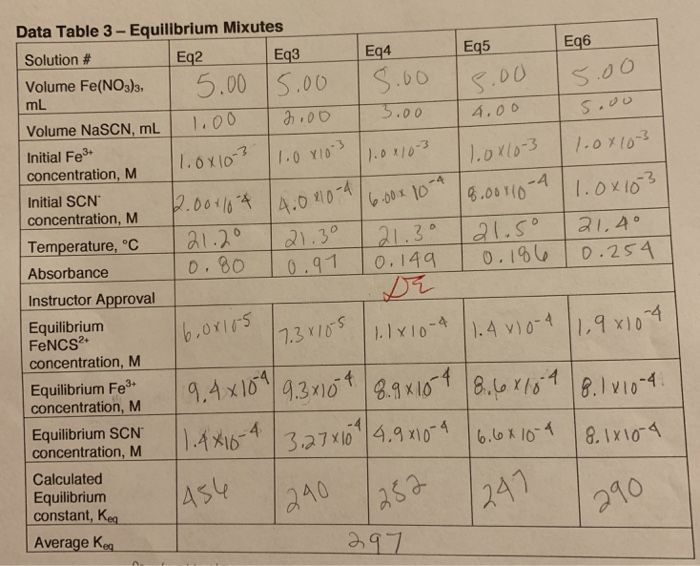 Data Table 3 – Equilibrium Mixutes
Solution # Eq2 Eq3 Eq4 Eq5 Eq6
Volume Fe(NO₃)₃, mL 5.00 5.00 5.00 5.00 5.00
Volume NaSCN, mL 1.00 2.00 3.00 4.00 5.00
Initial Fe³⁺ concentration, M 1.0x10⁻³ 1.0 x10⁻³ 1.0 x10⁻³ 1.0x10⁻³ 1.0x10⁻³
Initial SCN⁻ concentration, M 2.00x10⁻⁴ 4.0x10⁻⁴ 6.00x10⁻⁴ 8.00x10⁻⁴ 1.0x10⁻³
Temperature, °C 21.2° 21.3° 21.3° 21.5° 21.4°
Absorbance 0.80 0.97 0.149 0.186 0.254
Instructor Approval
Equilibrium FeNCS²⁺ concentration, M 6.0x10⁻⁵ 7.3x10⁻⁵ 1.1x10⁻⁴ 1.4x10⁻⁴ 1.9x10⁻⁴
Equilibrium Fe³⁺ concentration, M 9.4x10⁻⁴ 9.3x10⁻⁴ 8.9x10⁻⁴ 8.6x10⁻⁴ 8.1x10⁻⁴
Equilibrium SCN⁻ concentration, M 1.4x10⁻⁴ 3.27x10⁻⁴ 4.9x10⁻⁴ 6.6x10⁻⁴ 8.1x10⁻⁴
Calculated Equilibrium constant, Keq 456 240 252 247 290
Average Keq 297